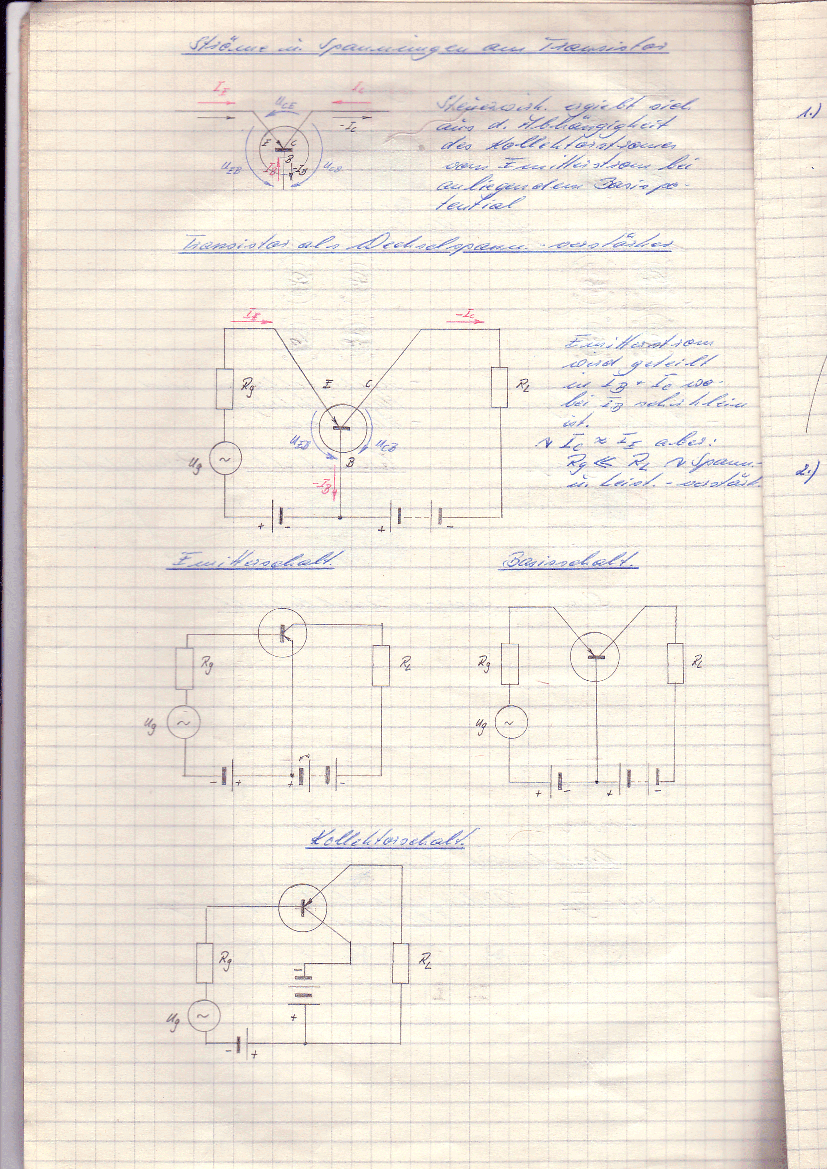 Ströme u. Spannungen am Transistor
I_E
U_CE
I_C
-I_C
E C
B
U_EB
I_B
-I_B
U_CB
Steuerwirk. ergiebt sich
aus d. Abhängigkeit
des Kollektorstromes
vom Emitterstrom bei
anliegendem Basispo-
tential
1.)
Transistor als Wechselspann.-verstärker
I_E
-I_C
Rg
E
C
R_L
Ug
U_EB
U_CB
B
-I_B
+ -
+ -
Emitterstrom
wird geteilt
in I_B + I_C wo-
bei I_B sehr klein
ist.
I_C ≈ I_E aber:
Rg ≪ R_L ↷ Spann.-
u. Leist.-verstärk.
2.)
Emitterschalt.
Basisschalt.
Rg
R_L
Ug
- +
+ -
Rg
R_L
Ug
+ -
+ -
Kollektorschalt.
Rg
R_L
-
Ug
+
- +